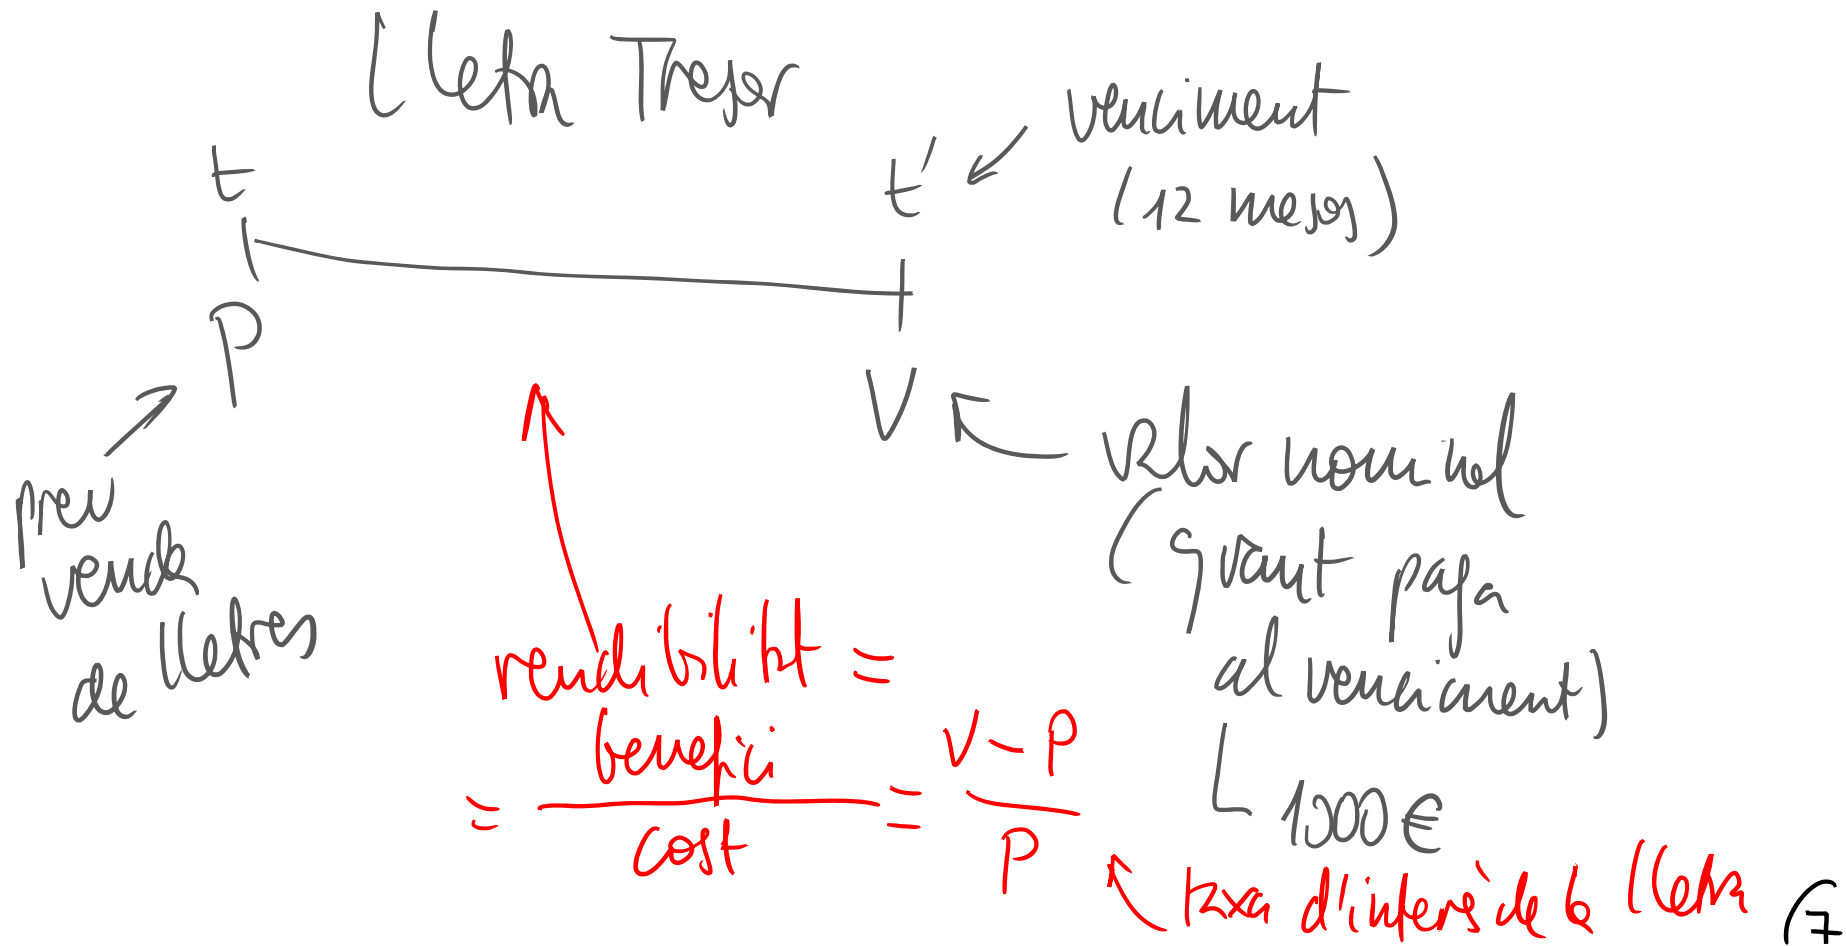 Lletra Tresor
t
t'
venciment
(12 mesos)
P
V
preu
venda
de lletres
valor nominal
(quant paga
al venciment)
1000 €
rendibilitat =
= benefici / cost = V - P / P
taxa d'interès de la lletra
7